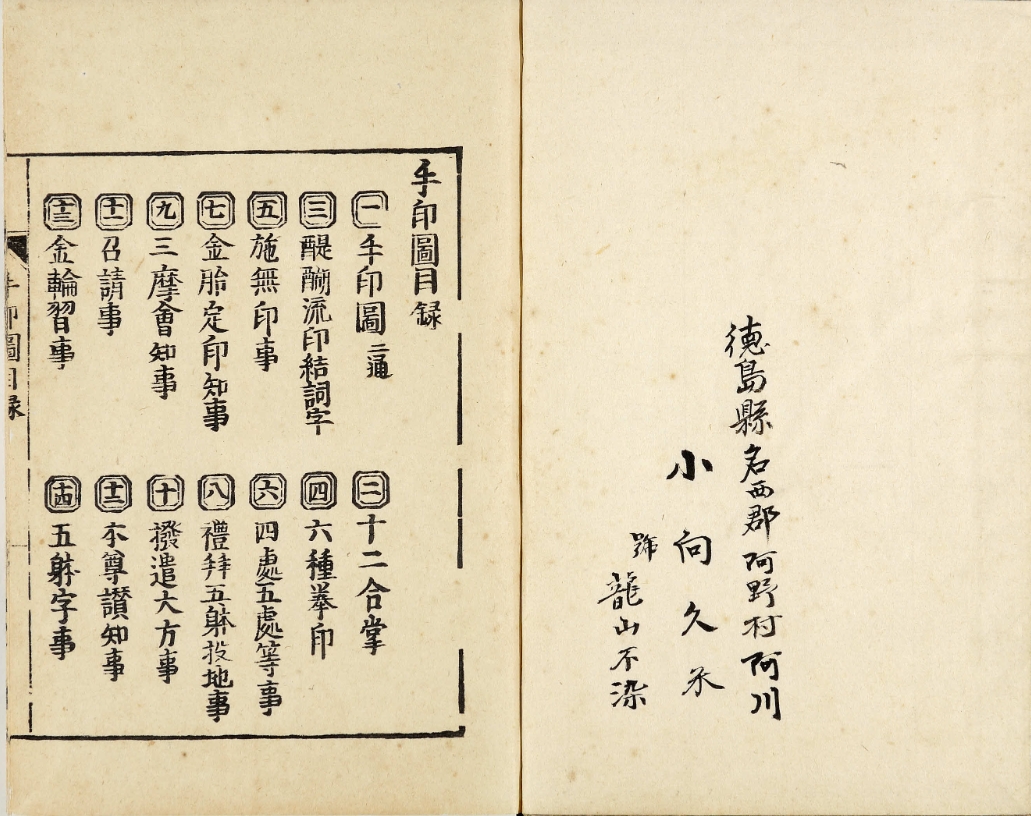 徳島縣名西郡阿野村阿川
小向久
號
龍山不染
手印圖目録
一 手印圖 二通
二 十二合掌
三 醍醐流印結詞字
四 六種拳印
五 施無印事
六 四處五處等事
七 金胎定印知事
八 禮拜五躰投地事
九 三摩會知事
十 撥遣大方事
十一 召請事
十二 本尊讃知事
十三 金輪習事
十四 五躰字事
手印圖目録